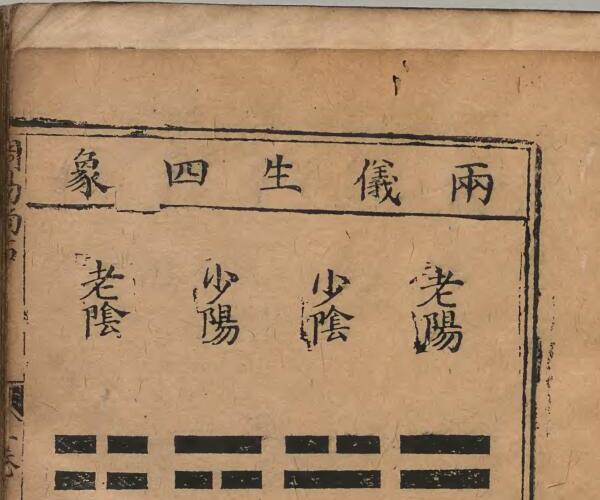 兩儀生四象
老陽
少陰
少陽
老陰